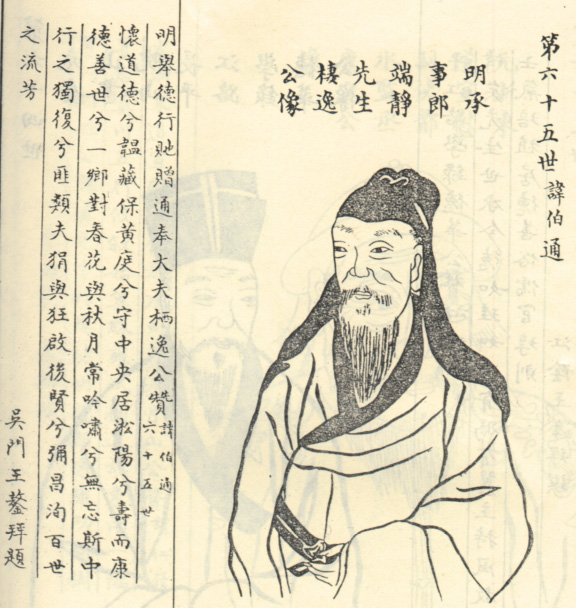 第六十五世諱伯通
明承
事郎
端靜
先生
棲逸
公像
明舉德行貤贈通奉大夫栖逸公贊諱伯通六十五世
懷道德兮韞藏保黃庭兮守中央居淞陽兮壽而康
德善世兮一鄉對春花與秋月常吟嘯兮無忘斯中
行之獨復兮匪類夫狷與狂啟後賢兮彌昌洵百世
之流芳
吳門王鏊拜題